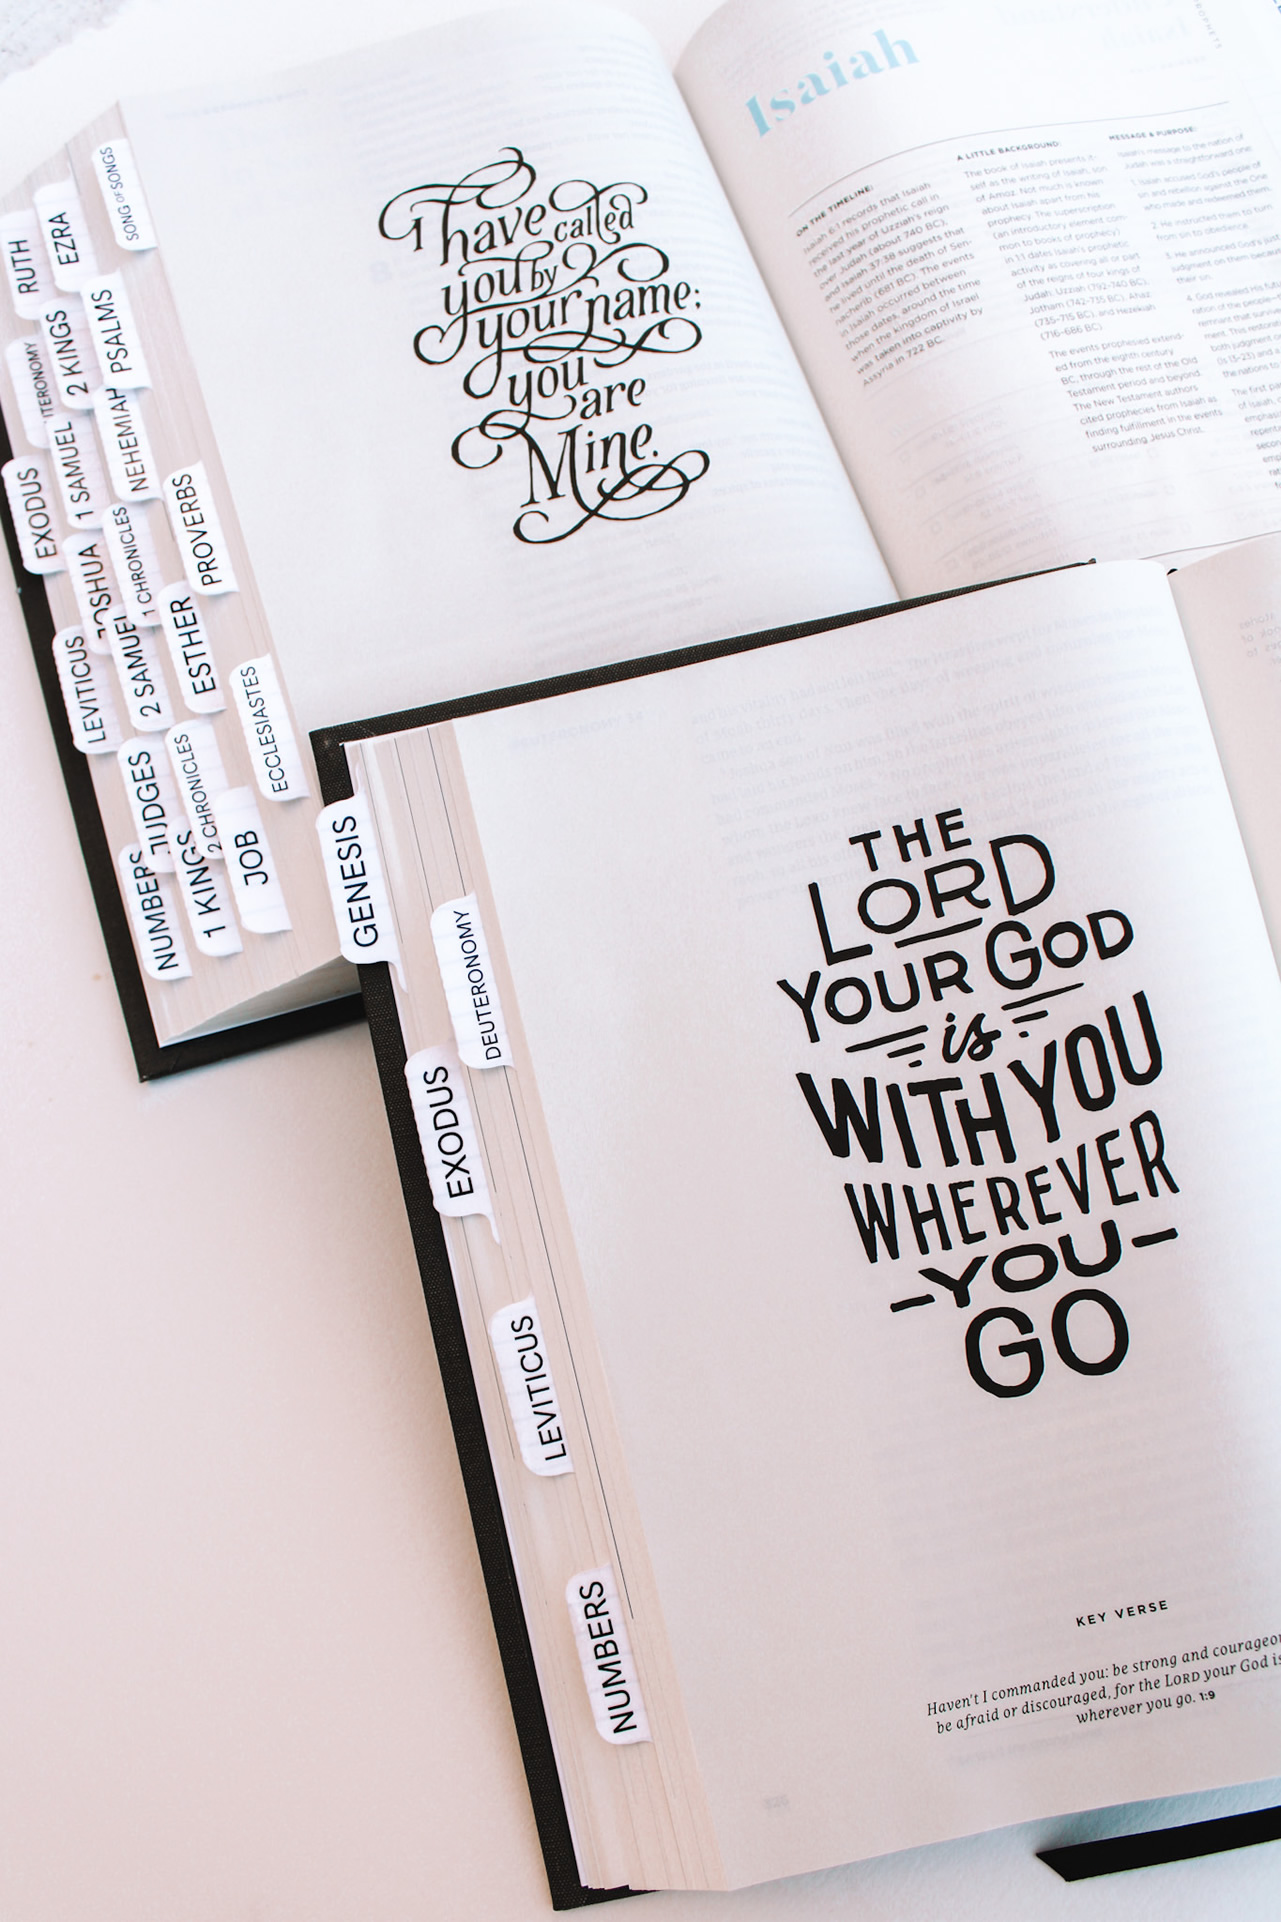 SONG OF SONGS
EZRA
RUTH
PSALMS
2 KINGS
NEHEMIAH
1 SAMUEL
EXODUS
PROVERBS
1 CHRONICLES
JOSHUA
ESTHER
2 SAMUEL
LEVITICUS
ECCLESIASTES
2 CHRONICLES
JUDGES
JOB
1 KINGS
NUMBERS
I have called
you by
your name;
you
are
Mine.
Isaiah
ON THE TIMELINE:
Isaiah 6:1 records that Isaiah
received his prophetic call in
the last year of Uzziah's reign
over Judah (about 740 BC),
and Isaiah 37:38 suggests that
he lived until the death of Sen-
nacherib (681 BC). The events
in Isaiah occurred between
those dates, around the time
when the kingdom of Israel
was taken into captivity by
Assyria in 722 BC.
A LITTLE BACKGROUND:
The book of Isaiah presents it-
self as the writing of Isaiah, son
of Amoz. Not much is known
about Isaiah apart from his
prophecy. The superscription
(an introductory element com-
mon to books of prophecy)
in 1:1 dates Isaiah's prophetic
activity as covering all or part
of the reigns of four kings of
Judah: Uzziah (792-740 BC),
Jotham (742-735 BC), Ahaz
(735-715 BC), and Hezekiah
(716-686 BC).
The events prophesied extend-
ed from the eighth century
BC, through the rest of the Old
Testament period and beyond.
The New Testament authors
cited prophecies from Isaiah as
finding fulfillment in the events
surrounding Jesus Christ.
MESSAGE & PURPOSE:
Isaiah's message to the nation of
Judah was a straightforward one:
1. Isaiah accused God's people of
sin and rebellion against the One
who made and redeemed them.
2. He instructed them to turn
from sin to obedience.
3. He announced God's just
judgment on them because
their sin.
4. God revealed His
ration of the people
remnant that
This
both judgment
the nations to
The first
of Isaiah,
GENESIS
DEUTERONOMY
EXODUS
LEVITICUS
NUMBERS
THE
LORD
YOUR GOD
is
WITH YOU
WHEREVER
-YOU-
GO
KEY VERSE
Haven't I commanded you: be strong and
be afraid or discouraged, for the LORD your God is
wherever you go. 1:9